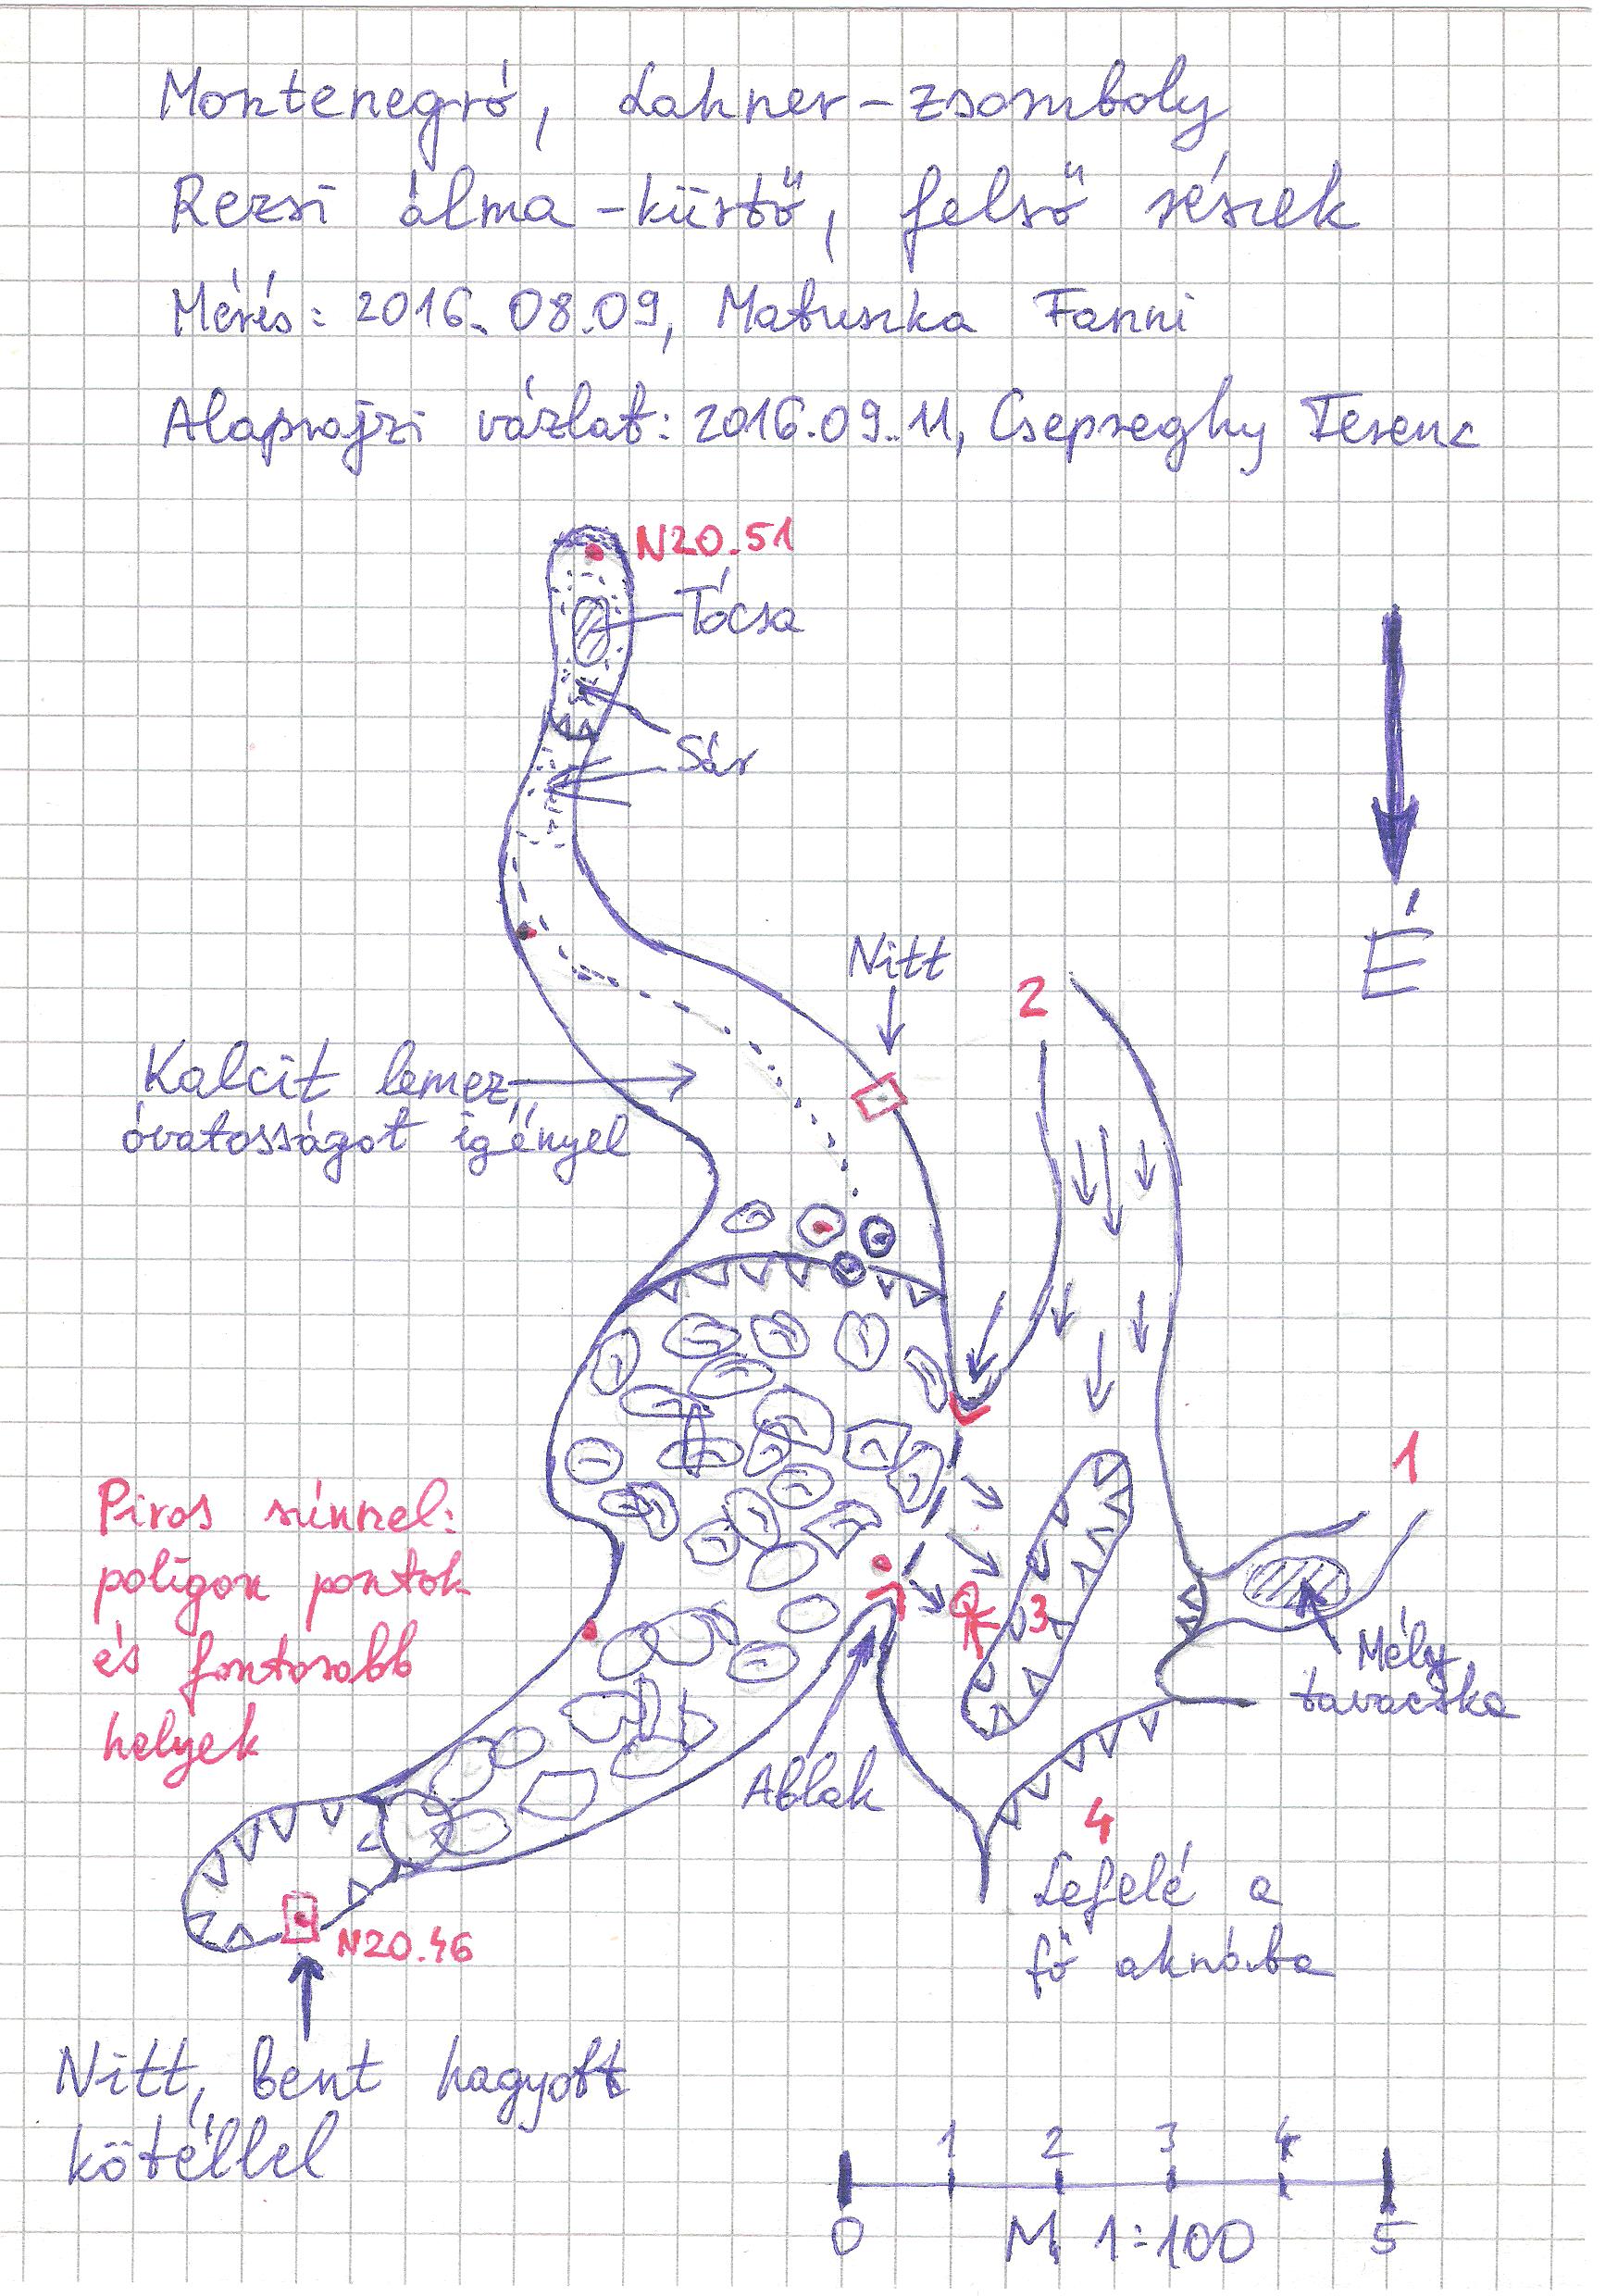 Montenegró, Lahner-zsomboly
Rezsi álma-kürtő, felső részek
Mérés: 2016.08.09, Matuszka Fanni
Alaprajzi vázlat: 2016.09.11, Csepreghy Ferenc
N20.51
Tócsa
Sár
É
Nitt
2
Kalcit lemez,
óvatosságot igényel
1
Piros színnel:
poligon pontok
és fontosabb
helyek
3
Mély
tavacska
Ablak
4
Lefelé a
fő aknába
N20.46
Nitt, bent hagyott
kötéllel
1 2 3 4
0 M 1:100 5